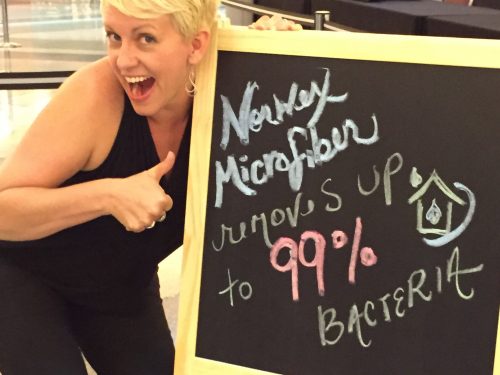 Norwex
Microfiber
removes UP
to 99%
BACTERIA